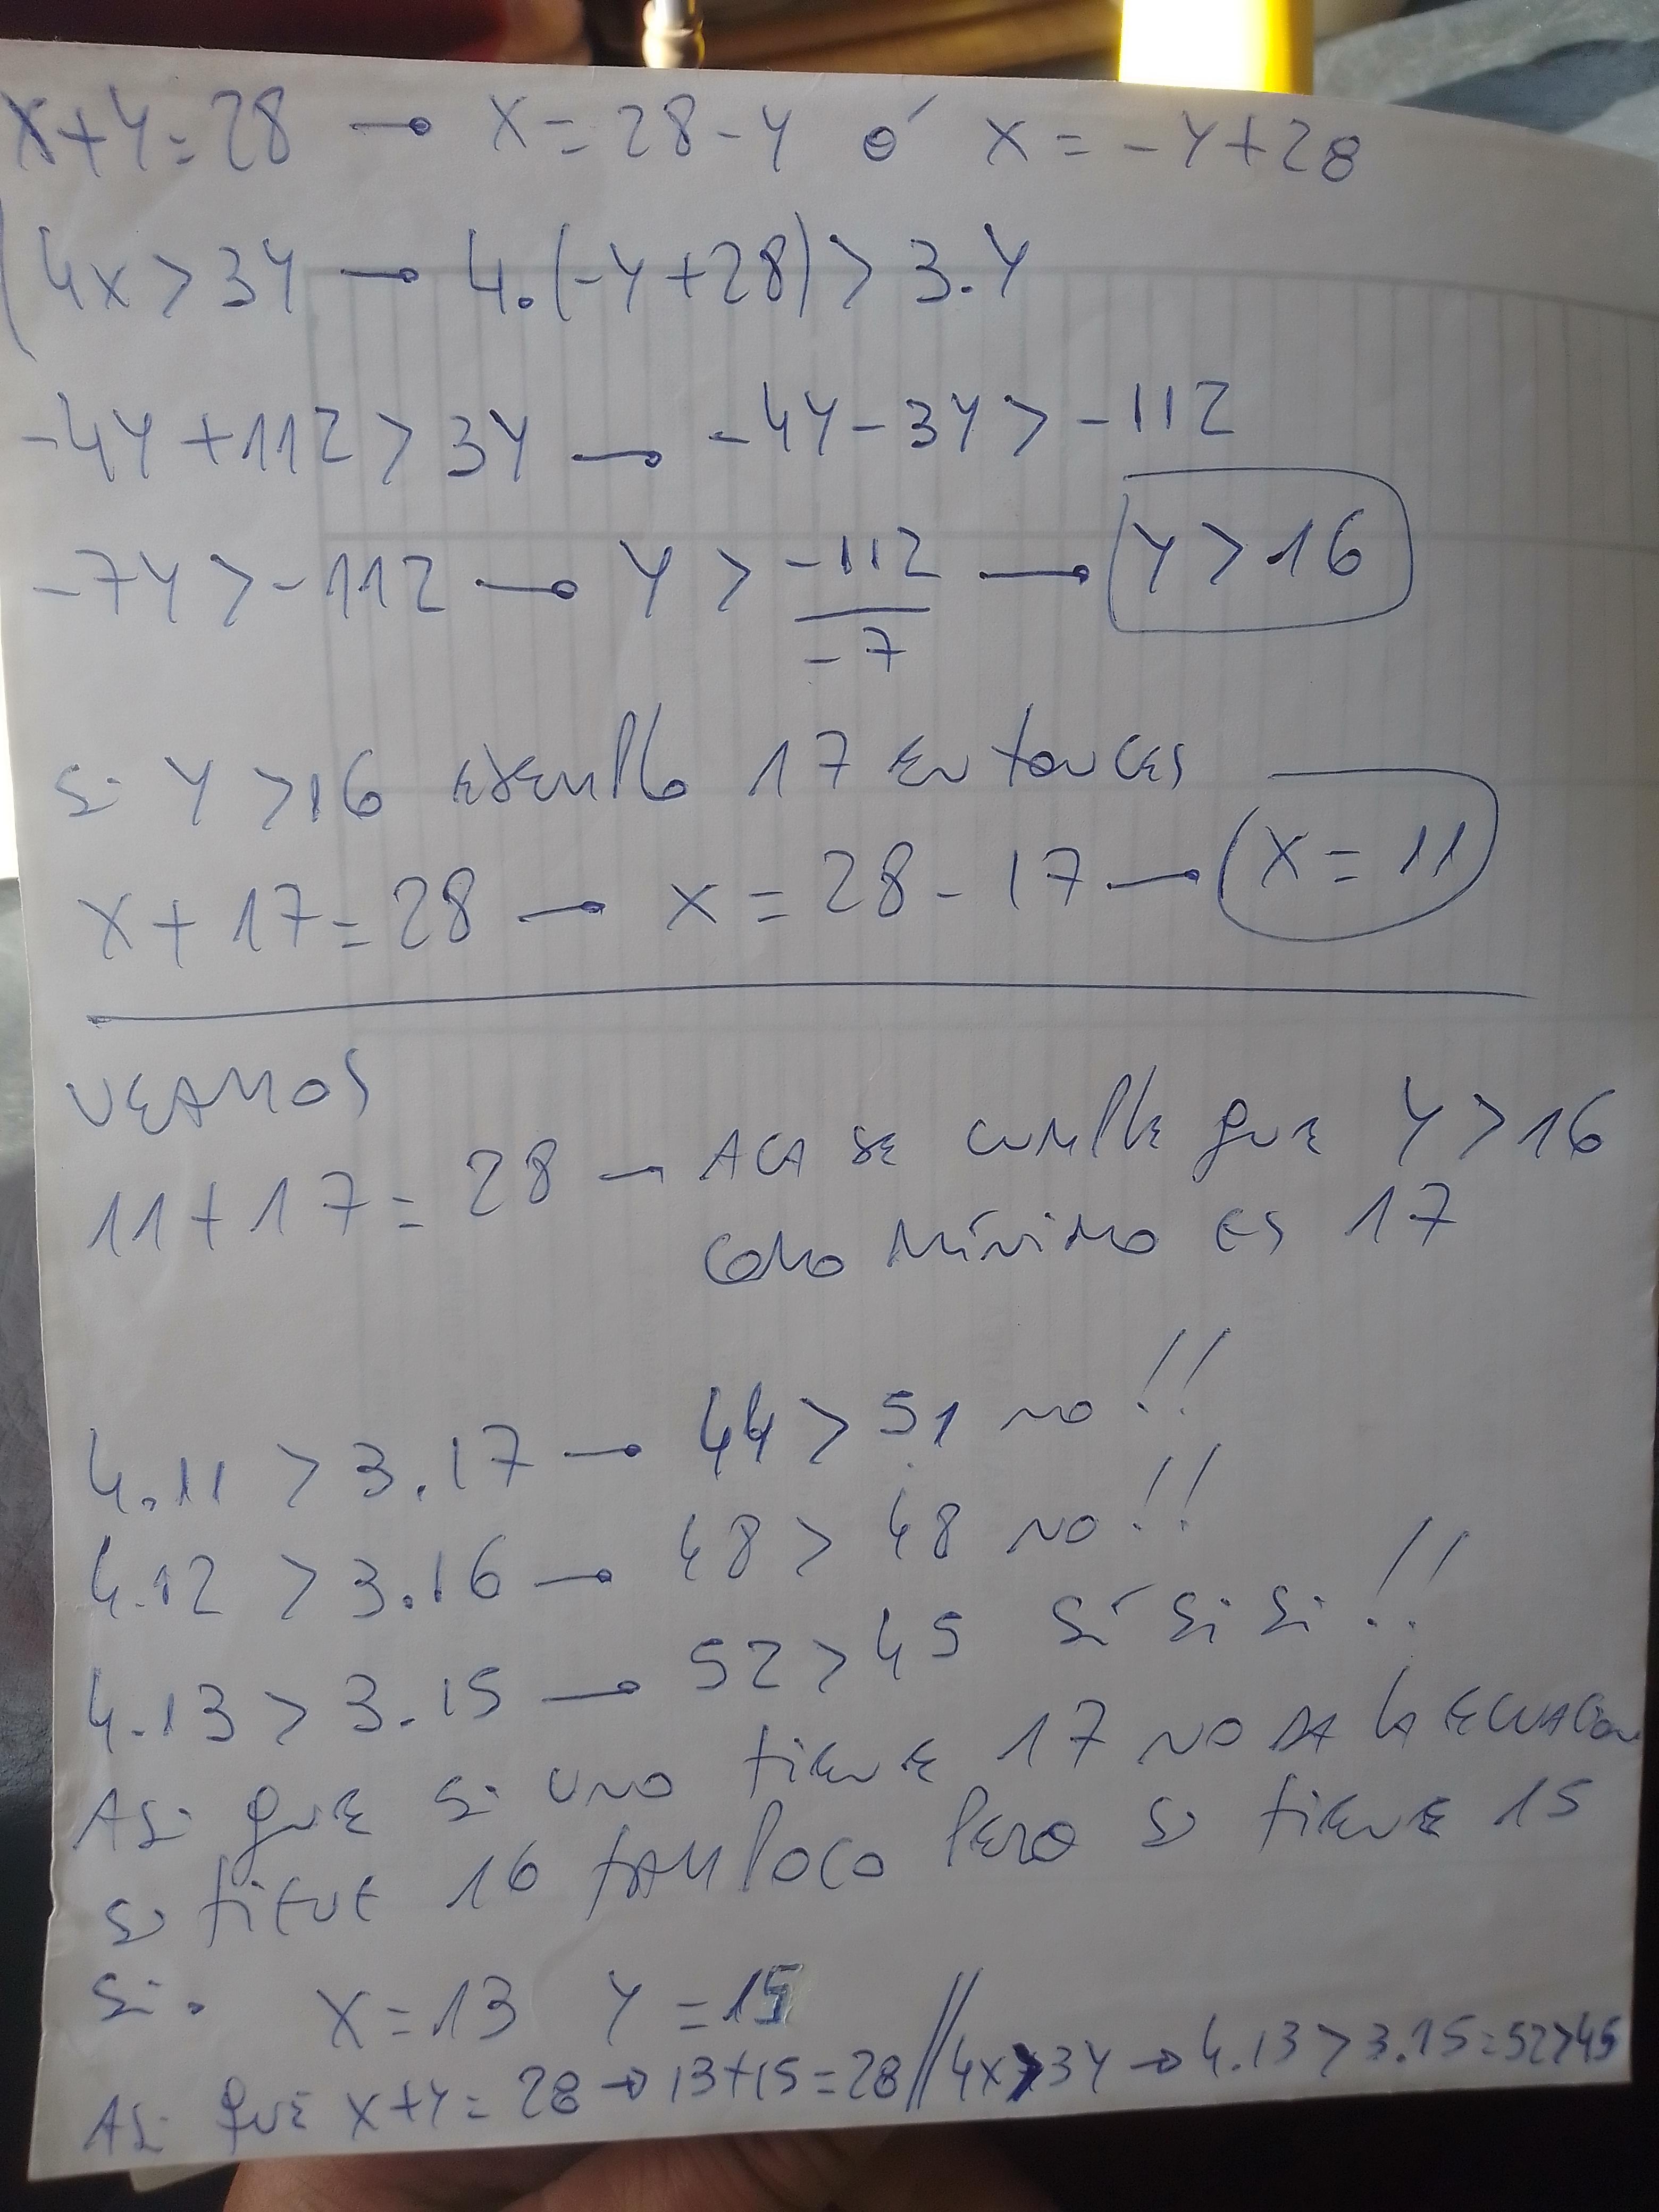 X+Y=28 → X=28-Y ó X=-Y+28
(4X>3Y → 4.(-Y+28)>3.Y
-4Y+112>3Y → -4Y-3Y>-112
-7Y>-112 → Y>-112/-7 → Y>16
Si Y>16 EJEMPLO 17 ENTONCES
X+17=28 → X=28-17 → X=11
VEAMOS
11+17=28 → ACA SE CUMPLE QUE Y>16
COMO MÍNIMO ES 17
4.11>3.17 → 44>51 NO!!
4.12>3.16 → 48>48 NO!!
4.13>3.15 → 52>45 Sí Si Si!!
ASi QUE Si UNO TIENE 17 NO DA LA ECUACION
Si TIENE 16 TAMPOCO PERO Si TIENE 15
Si. X=13 Y=15
ASi QUE X+Y=28 → 13+15=28 // 4X>3Y → 4.13>3.15=52>45